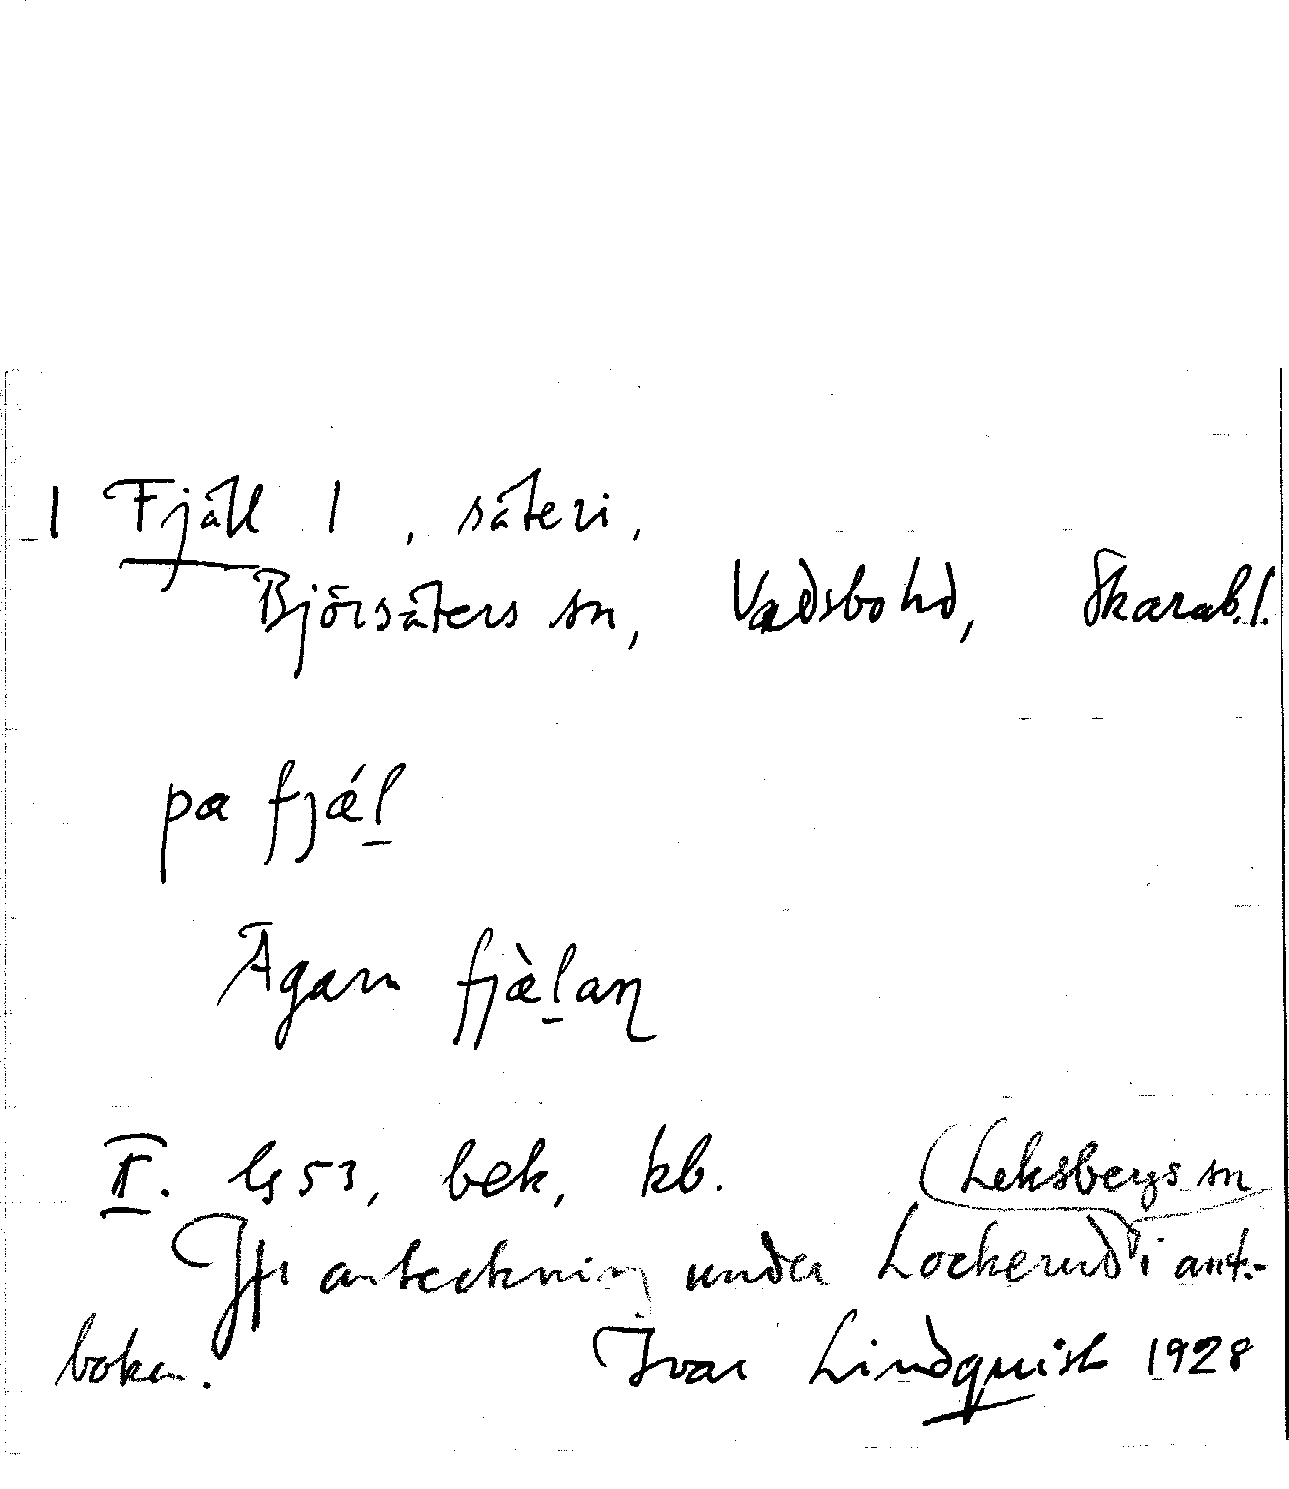 1 Fjäll 1, säteri,
Björsäters sn, Vadsbo hd, Skarab.l.
pa fjǽl̲
Ägarn fjæ̀l̲aɳ
II. ls 53, bek, kb. (Leksbergs sn
Jfr anteckning under Lockerud i ant.-
boken. Ivar Lindquist 1928